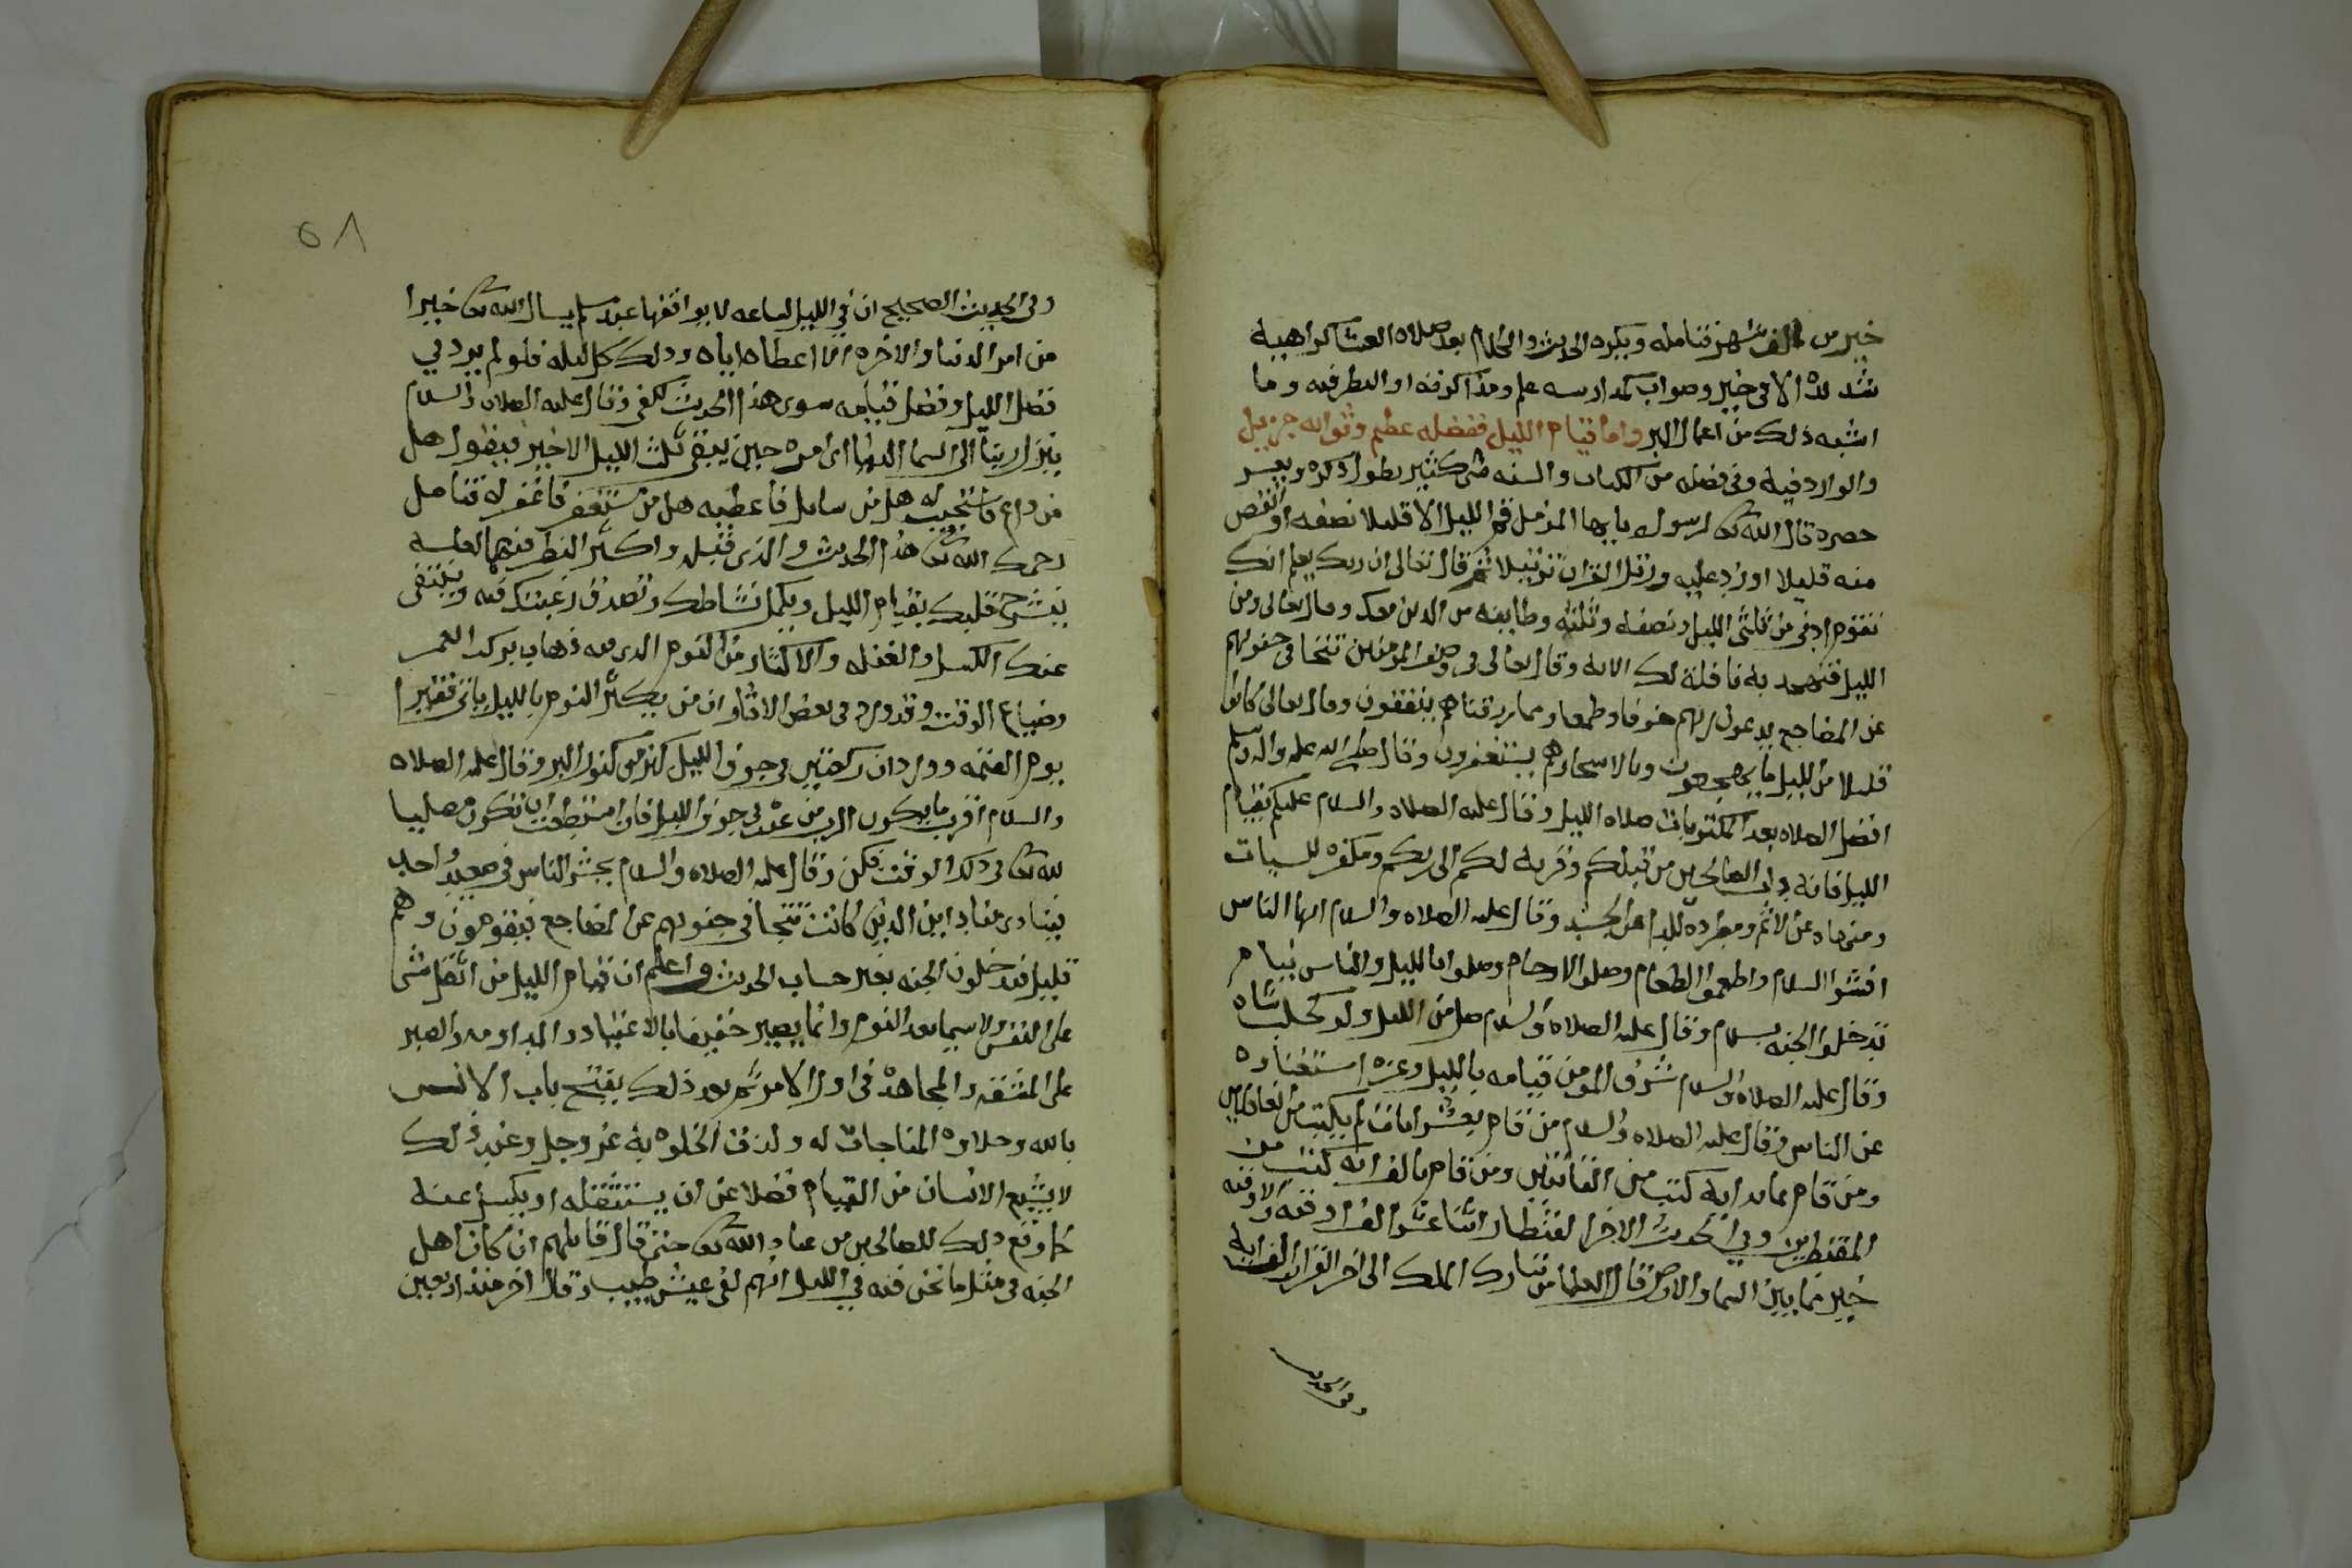 خير من الف شهر فتامله ويكره الحديث والكلام بعد صلاه العشا كراهيه
شديده الا في خير وصواب كمدارسه علم ومذاكرته او النظر فيه وما
اشبه ذلك من اعمال البر واما قيام الليل ففضله عظيم وثوابه جزيل
والوارد فيه وفي فضله من الكتاب والسنه شي كثير يطول ذكره ويعسر
حصره قال الله تعا لرسوله يايها المزمل قم الليل الا قليلا نصفه او انقص
منه قليلا او زد عليه ورتل القران ترتيلا ثم قال تعالى ان ربك يعلم انك
تقوم ادنى من ثلثي الليل ونصفه وثلثه وطايفه من الذين معك وقال تعالى ومن
الليل فتهجد به نافلة لك الايه وقال تعالى في وصف المومنين تتجافى جنوبهم
عن المضاجع يدعون ربهم خوفا وطمعا ومما رزقناهم ينفقون وقال تعالى كانوا
قليلا من الليل ما يهجعون وبالاسحار هم يستغفرون وقال صلى الله عليه واله وسلم
افضل الصلاه بعد المكتوبات صلاه الليل وقال عليه الصلاه والسلام عليكم بقيام
الليل فانه داب الصالحين من قبلكم وقربه لكم الى ربكم ومكفره للسيات
ومنهاه عن الاثم ومطرده للدا عن الجسد وقال عليه الصلاه والسلام ايها الناس
افشوا السلام واطعموا الطعام وصلوا الارحام وصلوا بالليل والناس نيام
تدخلوا الجنه بسلام وقال عليه الصلاه والسلام صل من الليل ولو كحلب شاه
وقال عليه الصلاه والسلام شرف المومن قيامه بالليل وعزه استغناوه
عن الناس وقال عليه الصلاه والسلام من قام بعشر ايات لم يكتب من الغافلين
ومن قام بمايه ايه كتب من القانتين ومن قام بالف ايه كتب من
المقنطرين وفي الحديث الاخر القنطار اثنا عشر الف اوقيه والاوقيه
خير مما بين السما والارض قال العلما من تبارك الملك الى اخر القران الف ايه
وفي الحديث
٥٨
وفي الحديث الصحيح ان في الليل لساعه لا يوافقها عبد مسلم يسال الله تعا خيرا
من امر الدنيا والاخره الا اعطاه اياه وذلك كل ليله فلو لم يرد في
فضل الليل وفضل قيامه سوى هذا الحديث لكفى وقال عليه الصلاه والسلام
ينزل ربنا الى السما الدنيا اي امره حين يبقى ثلث الليل الاخير فيقول هل
من داع فاستجيب له هل من سايل فاعطيه هل من مستغفر فاغفر له فتامل
رحمك الله تعا هذا الحديث والذي قبله واكثر النظر فيهما لعله
ينشرح قلبك بقيام الليل ويكمل نشاطك وتصدق رغبتك فيه وينتفى
عنك الكسل والغفله والاكثار من النوم الذي فيه ذهاب بركة العمر
وضياع الوقت وقد ورد في بعض الاثار ان من يكثر النوم بالليل ياتي فقيرا
يوم القيمه وورد ان ركعتين في جوف الليل كنز من كنوز البر وقال عليه الصلاه
والسلام اقرب ما يكون الرب من عبده في جوف الليل فان استطعت ان تكون مصليا
لله تعا في ذلك الوقت فكن وقال عليه الصلاه والسلام يحشر الناس في صعيد واحد
فينادي مناد اين الذين كانت تتجافى جنوبهم عن المضاجع فيقومون وهم
قليل فيدخلون الجنه بغير حساب الحديث واعلم ان قيام الليل من اثقل شي
على النفس ولا سيما بعد النوم وانما يصير خفيفا بالاعتياد والمداومه والصبر
على المشقه والمجاهدة في اول الامر ثم بعد ذلك يفتح باب الانس
بالله وحلاوه المناجات له ولذت الخلوه به عز وجل وعند ذلك
لا يشبع الانسان من القيام فضلا عن ان يستثقله او يكسل عنه
كما وقع ذلك للصالحين من عباد الله تعا حتى قال قايلهم ان كان اهل
الجنه في مثل ما نحن فيه في الليل انهم لفي عيش طيب وقال اخر منذ اربعين